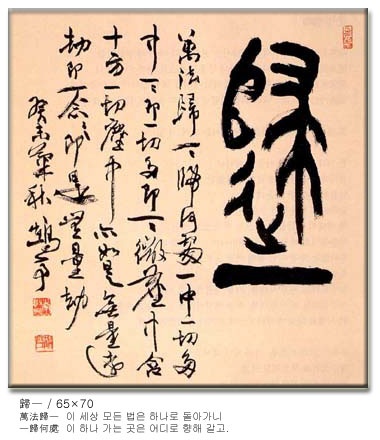 歸一
萬法歸一々歸何處一中一切多
中一々即一切多即一々微塵中含
十方一切塵中亦如是無量遠
劫即一念々々即是無量劫
癸未 秋
歸一 / 65×70
萬法歸一 이 세상 모든 법은 하나로 돌아가니
一歸何處 이 하나 가는 곳은 어디로 향해 갈고.